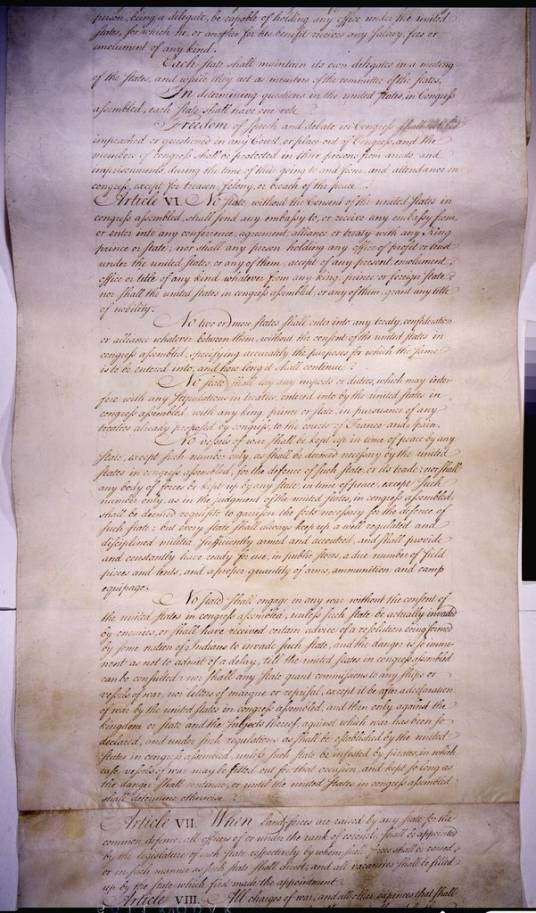 person, being a delegate, be capable of holding any office under the united
states, for which he, or another for his benefit receives any salary, fees or
emolument of any kind.
Each state shall maintain its own delegates in a meeting
of the states, and while they act as members of the committee of the states.
In determining questions in the united states, in Congress
assembled, each state shall have one vote.
Freedom of speech and debate in Congress shall not be
impeached or questioned in any Court, or place out of Congress, and the
members of congress shall be protected in their persons from arrests and
imprisonments, during the time of their going to and from, and attendance on
congress, except for treason, felony, or breach of the peace.
Article VI. No state without the Consent of the united states in
congress assembled, shall send any embassy to, or receive any embassy from,
or enter into any conference, agreement, alliance or treaty with any King
prince or state; nor shall any person holding any office of profit or trust
under the united states, or any of them, accept of any present, emolument,
office or title of any kind whatever from any king, prince or foreign state;
nor shall the united states in congress assembled, or any of them, grant any title
of nobility.
No two or more states shall enter into any treaty, confederation
or alliance whatever between them, without the consent of the united states in
congress assembled, specifying accurately the purposes for which the same
is to be entered into, and how long it shall continue.
No state shall lay any imposts or duties, which may inter
fere with any stipulations in treaties, entered into by the united states in
congress assembled, with any king, prince or state, in pursuance of any
treaties already proposed by congress, to the courts of France and Spain.
No vessels of war shall be kept up in time of peace by any
state, except such number only, as shall be deemed necessary by the united
states in congress assembled, for the defence of such state, or its trade; nor shall
any body of forces be kept up by any state, in time of peace, except such
number only, as in the judgment of the united states, in congress assembled,
shall be deemed requisite to garrison the forts necessary for the defence of
such state; but every state shall always keep up a well regulated and
disciplined militia, sufficiently armed and accoutred, and shall provide
and constantly have ready for use, in public stores, a due number of field
pieces and tents, and a proper quantity of arms, ammunition and camp
equipage.
No state shall engage in any war without the consent of
the united states in congress assembled, unless such state be actually invaded
by enemies, or shall have received certain advice of a resolution being formed
by some nation of Indians to invade such state, and the danger is so immi-
nent as not to admit of a delay, till the united states in congress assembled
can be consulted: nor shall any state grant commissions to any ships or
vessels of war, nor letters of marque or reprisal, except it be after a declaration
of war by the united states in congress assembled, and then only against the
kingdom or state and the subjects thereof, against which war has been so
declared, and under such regulations as shall be established by the united
states in congress assembled, unless such state be infested by pirates, in which
case, vessels of war may be fitted out for that occasion, and kept so long as
the danger shall continue, or until the united states in congress assembled
shall determine otherwise.
Article VII. When land-forces are raised by any state for the
common defence, all officers of or under the rank of colonel, shall be appointed
by the legislature of each state respectively by whom such forces shall be raised,
or in such manner as such state shall direct, and all vacancies shall be filled
up by the state which first made the appointment.
Article VIII. All charges of war, and all other expences that shall